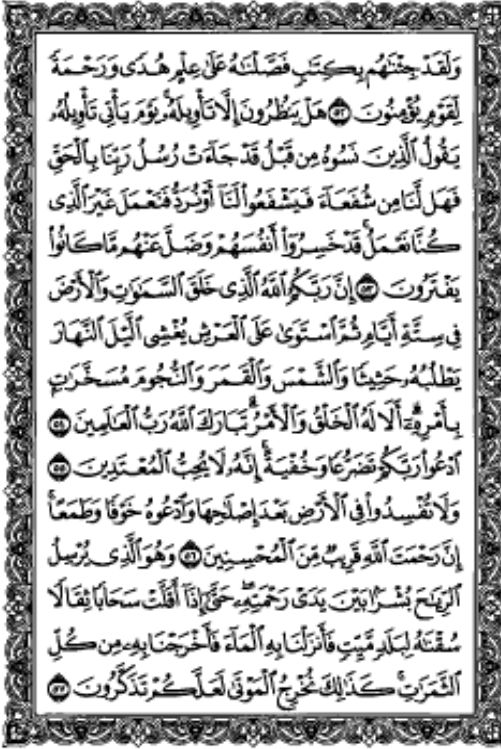 وَلَقَدْ جِئْنَٰهُم بِكِتَٰبٍ فَصَّلْنَٰهُ عَلَىٰ عِلْمٍ هُدًى وَرَحْمَةً
لِّقَوْمٍ يُؤْمِنُونَ ﴿٥٢﴾ هَلْ يَنظُرُونَ إِلَّا تَأْوِيلَهُۥ ۚ يَوْمَ يَأْتِى تَأْوِيلُهُۥ
يَقُولُ ٱلَّذِينَ نَسُوهُ مِن قَبْلُ قَدْ جَآءَتْ رُسُلُ رَبِّنَا بِٱلْحَقِّ
فَهَل لَّنَا مِن شُفَعَآءَ فَيَشْفَعُوا۟ لَنَآ أَوْ نُرَدُّ فَنَعْمَلَ غَيْرَ ٱلَّذِى
كُنَّا نَعْمَلُ ۚ قَدْ خَسِرُوٓا۟ أَنفُسَهُمْ وَضَلَّ عَنْهُم مَّا كَانُوا۟
يَفْتَرُونَ ﴿٥٣﴾ إِنَّ رَبَّكُمُ ٱللَّهُ ٱلَّذِى خَلَقَ ٱلسَّمَٰوَٰتِ وَٱلْأَرْضَ
فِى سِتَّةِ أَيَّامٍ ثُمَّ ٱسْتَوَىٰ عَلَى ٱلْعَرْشِ يُغْشِى ٱلَّيْلَ ٱلنَّهَارَ
يَطْلُبُهُۥ حَثِيثًا وَٱلشَّمْسَ وَٱلْقَمَرَ وَٱلنُّجُومَ مُسَخَّرَٰتٍۭ
بِأَمْرِهِۦٓ ۗ أَلَا لَهُ ٱلْخَلْقُ وَٱلْأَمْرُ ۗ تَبَارَكَ ٱللَّهُ رَبُّ ٱلْعَٰلَمِينَ ﴿٥٤﴾
ٱدْعُوا۟ رَبَّكُمْ تَضَرُّعًا وَخُفْيَةً ۚ إِنَّهُۥ لَا يُحِبُّ ٱلْمُعْتَدِينَ ﴿٥٥﴾
وَلَا تُفْسِدُوا۟ فِى ٱلْأَرْضِ بَعْدَ إِصْلَٰحِهَا وَٱدْعُوهُ خَوْفًا وَطَمَعًا ۚ
إِنَّ رَحْمَتَ ٱللَّهِ قَرِيبٌ مِّنَ ٱلْمُحْسِنِينَ ﴿٥٦﴾ وَهُوَ ٱلَّذِى يُرْسِلُ
ٱلرِّيَٰحَ بُشْرًۢا بَيْنَ يَدَىْ رَحْمَتِهِۦ ۖ حَتَّىٰٓ إِذَآ أَقَلَّتْ سَحَابًا ثِقَالًا
سُقْنَٰهُ لِبَلَدٍ مَّيِّتٍ فَأَنزَلْنَا بِهِ ٱلْمَآءَ فَأَخْرَجْنَا بِهِۦ مِن كُلِّ
ٱلثَّمَرَٰتِ ۚ كَذَٰلِكَ نُخْرِجُ ٱلْمَوْتَىٰ لَعَلَّكُمْ تَذَكَّرُونَ ﴿٥٧﴾